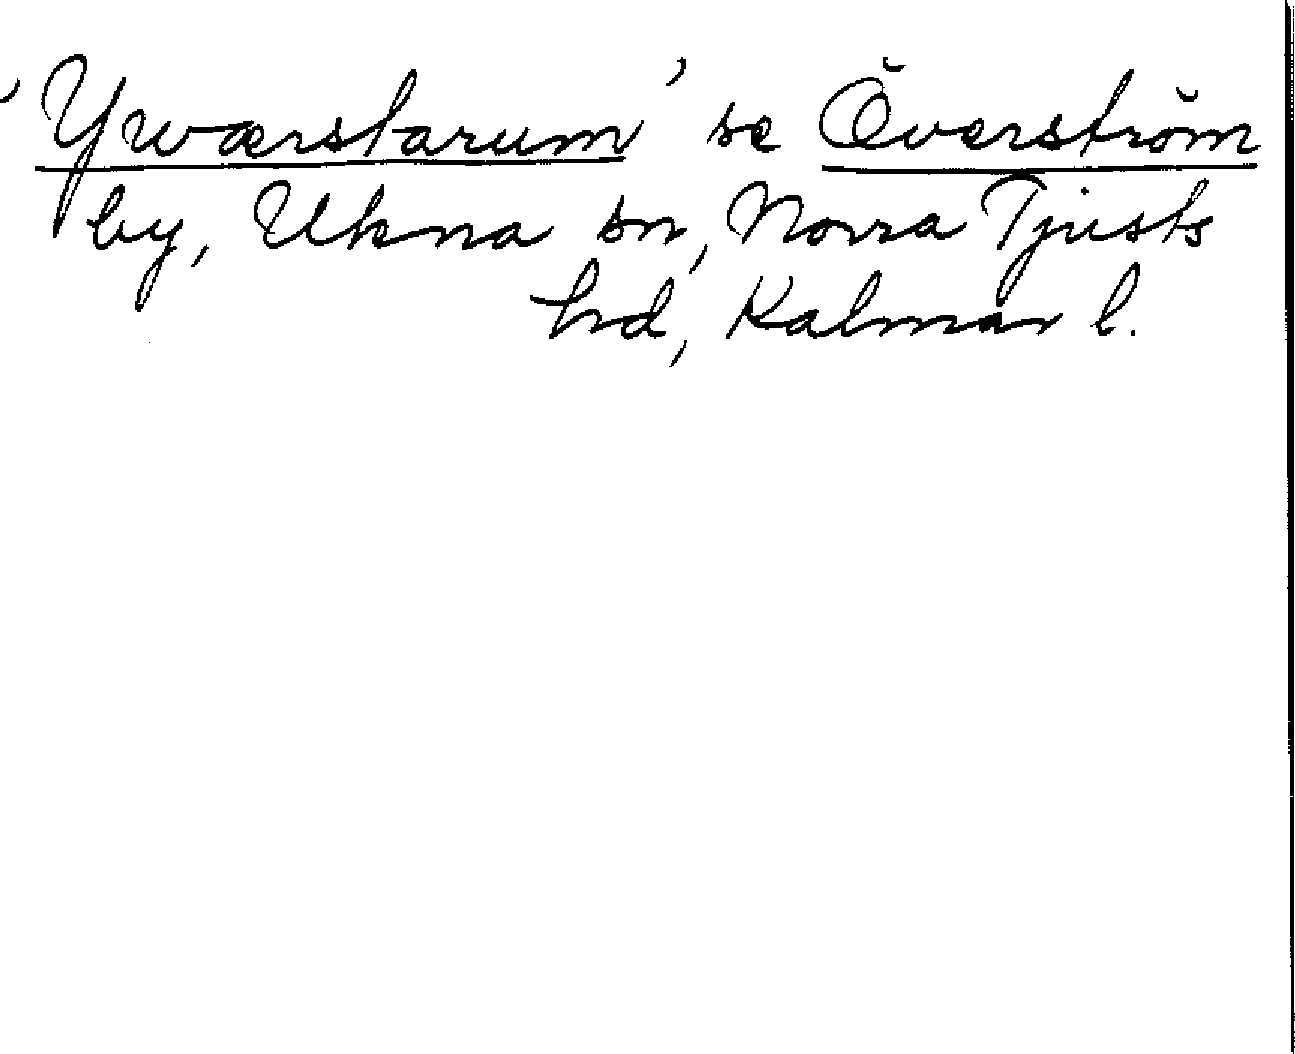 'Ywærstarum' se Överström
by, Ukna sn, Norra Tjusts
hd, Kalmar l.